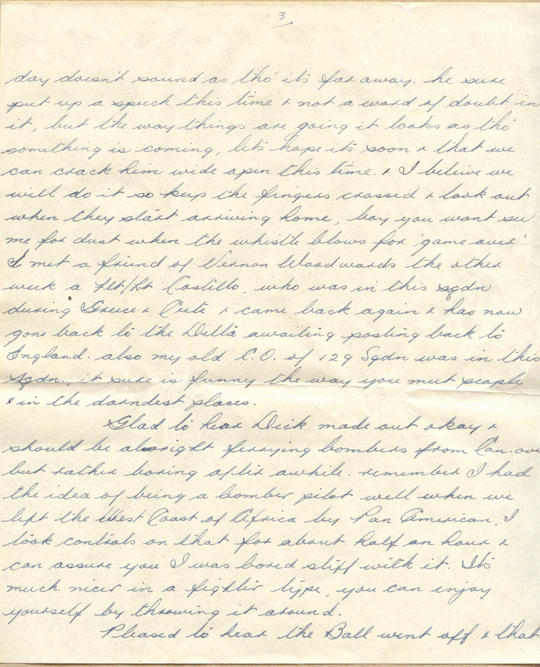 3
day doesn't sound as tho' it's far away. he sure
put up a speech this time & not a word of doubt in
it, but the way things are going it looks as tho'
something is coming, lets hope it's soon & that we
can crack him wide open this time. & I believe we
will do it so keep the fingers crossed & look out
when they start arriving home, boy you wont see
me for dust when the whistle blows for 'game over'
I met a friend of Vernon Woodwards the other
week a Flt/Lt Costello, who was in this sqdn
during Greece & Crete & came back again & has now
gone back to the Delta awaiting posting back to
England. also my old C.O. of 129 Sqdn was in this
sqdn., it sure is funny the way you meet people
& in the darndest places.
Glad to hear Dick made out okay &
should be alright ferrying bombers from Can. over
but rather boring after awhile. remember I had
the idea of being a bomber pilot well when we
left the West Coast of Africa by Pan American, I
took controls on that for about half an hour &
can assure you I was bored stiff with it. It's
much nicer in a fighter type, you can enjoy
yourself by throwing it around.
Pleased to hear the Ball went off & that